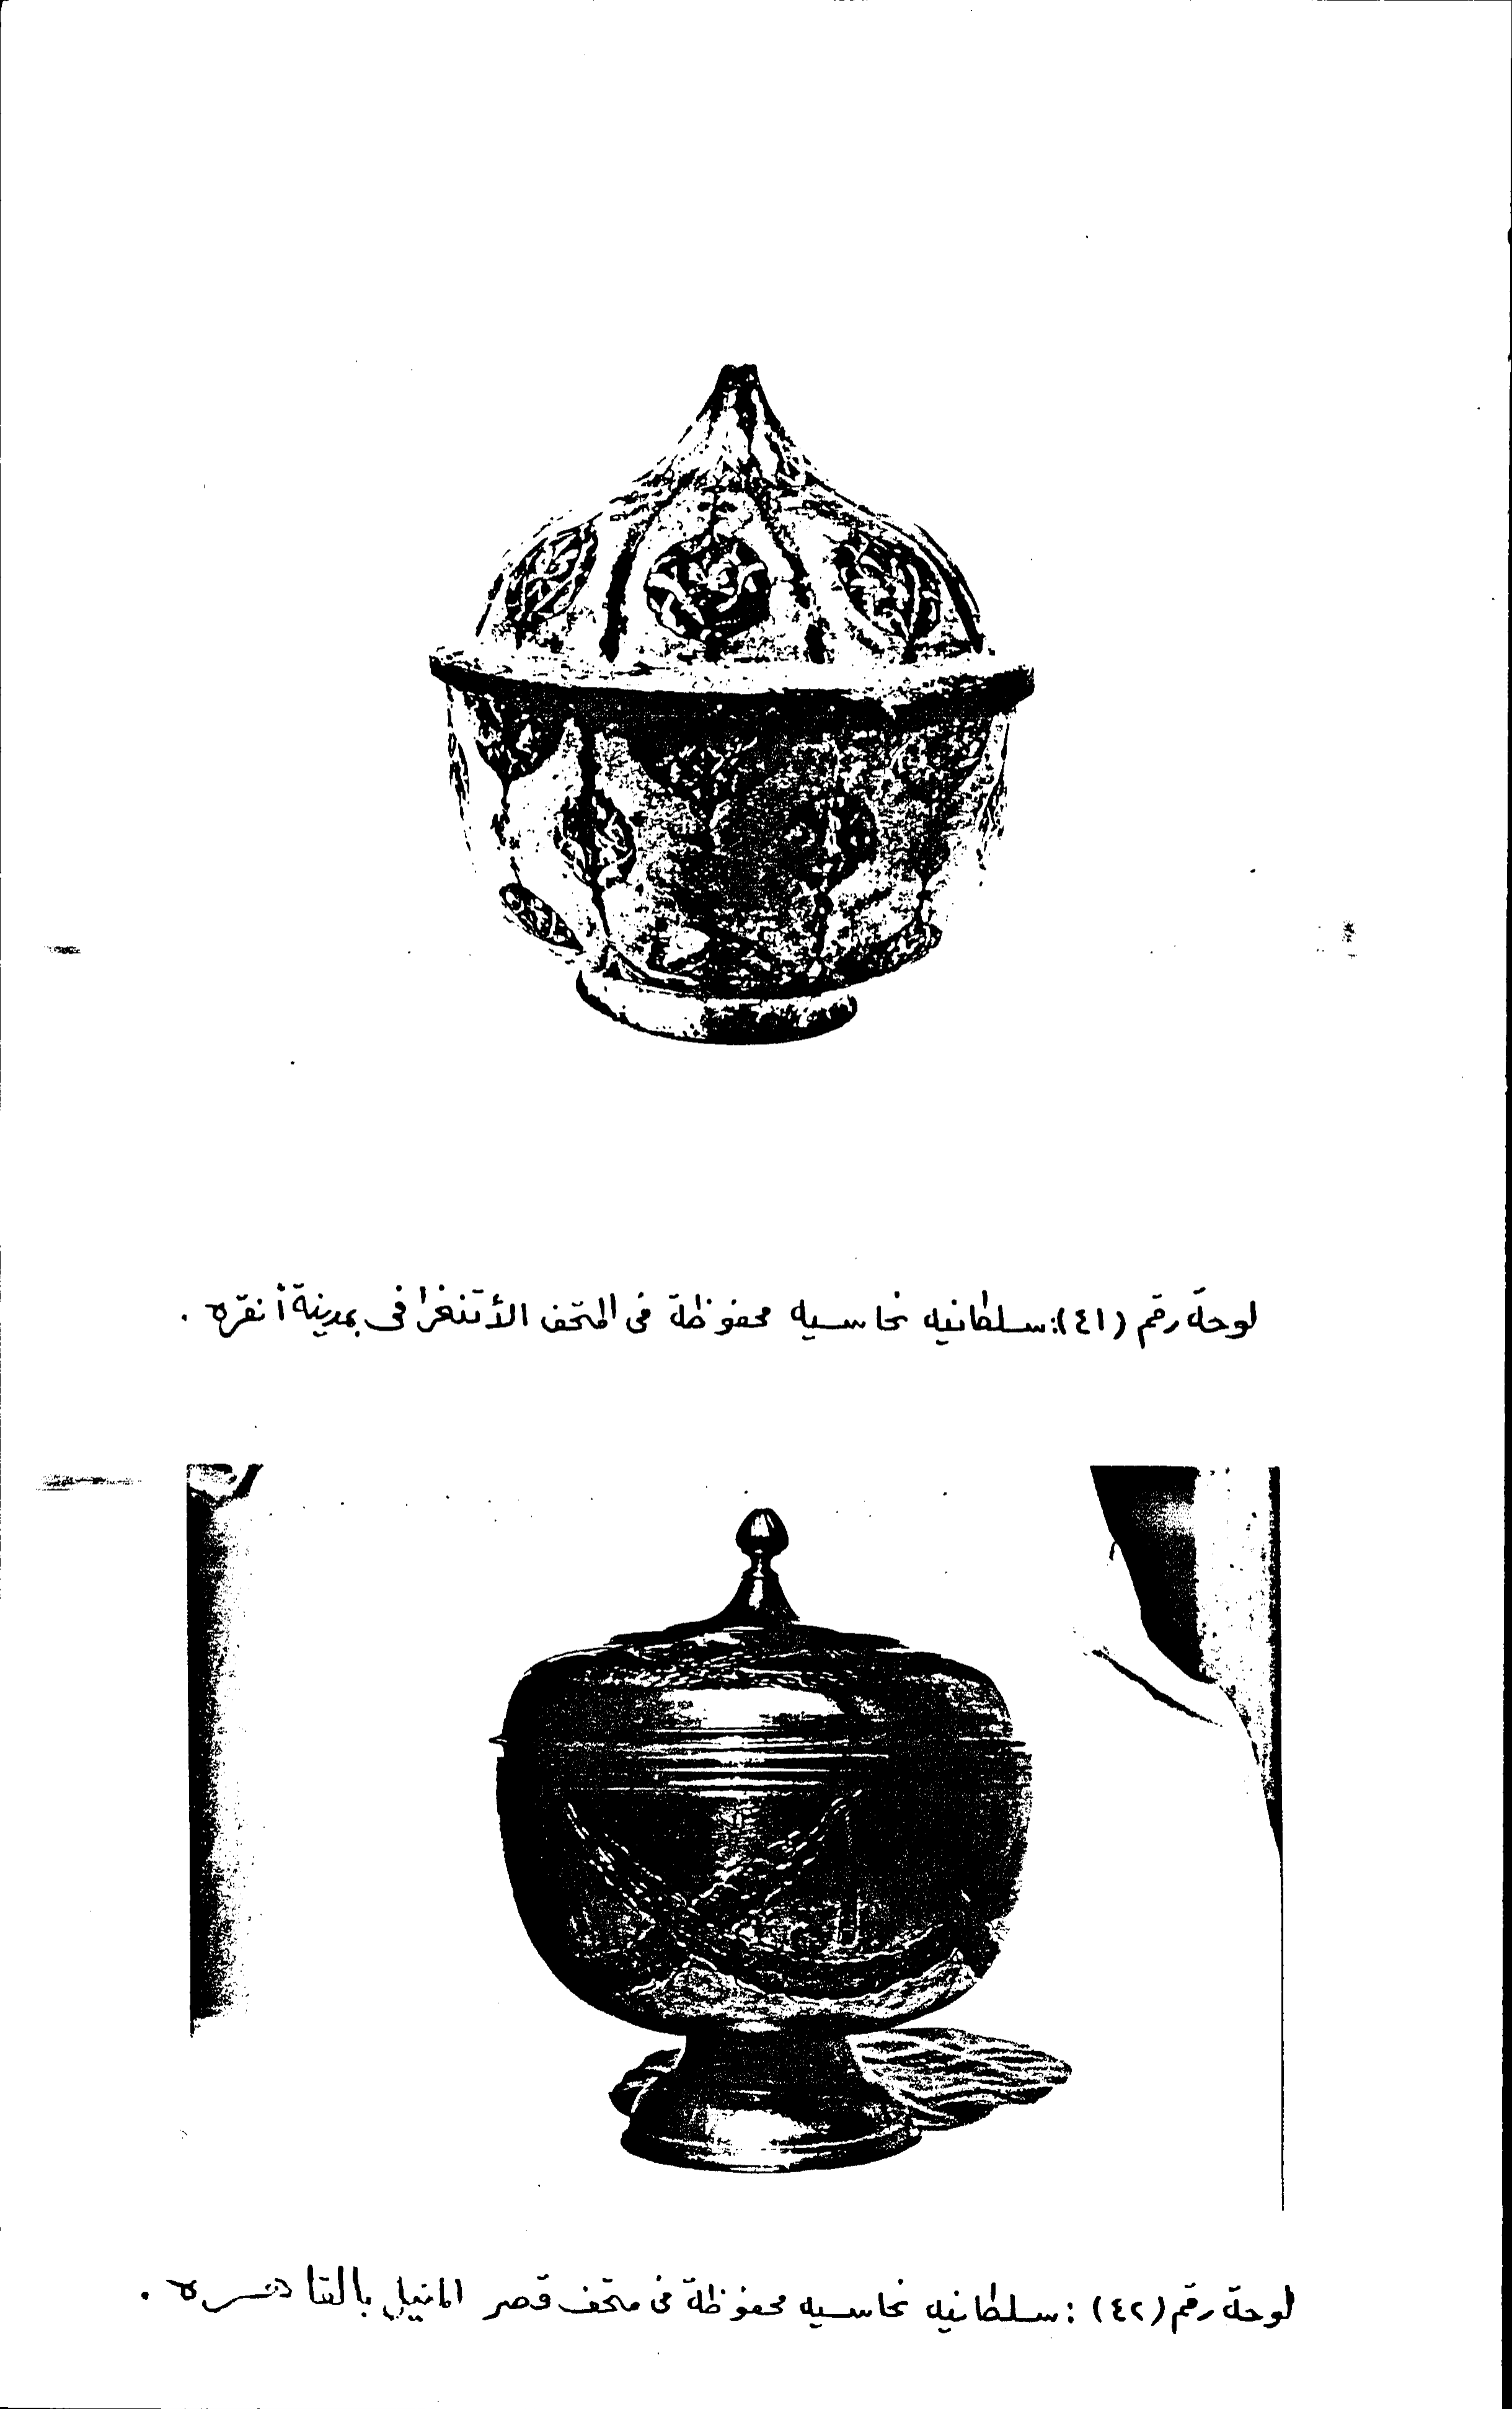 لوحة رقم (٤١): سلطانيه نحاسيه محفوظة فى المتحف الأتنغرافى بمدينة أنقره .
لوحة رقم (٤٢) : سلطانيه نحاسيه محفوظة فى متحف قصر المانيل بالقاهره .